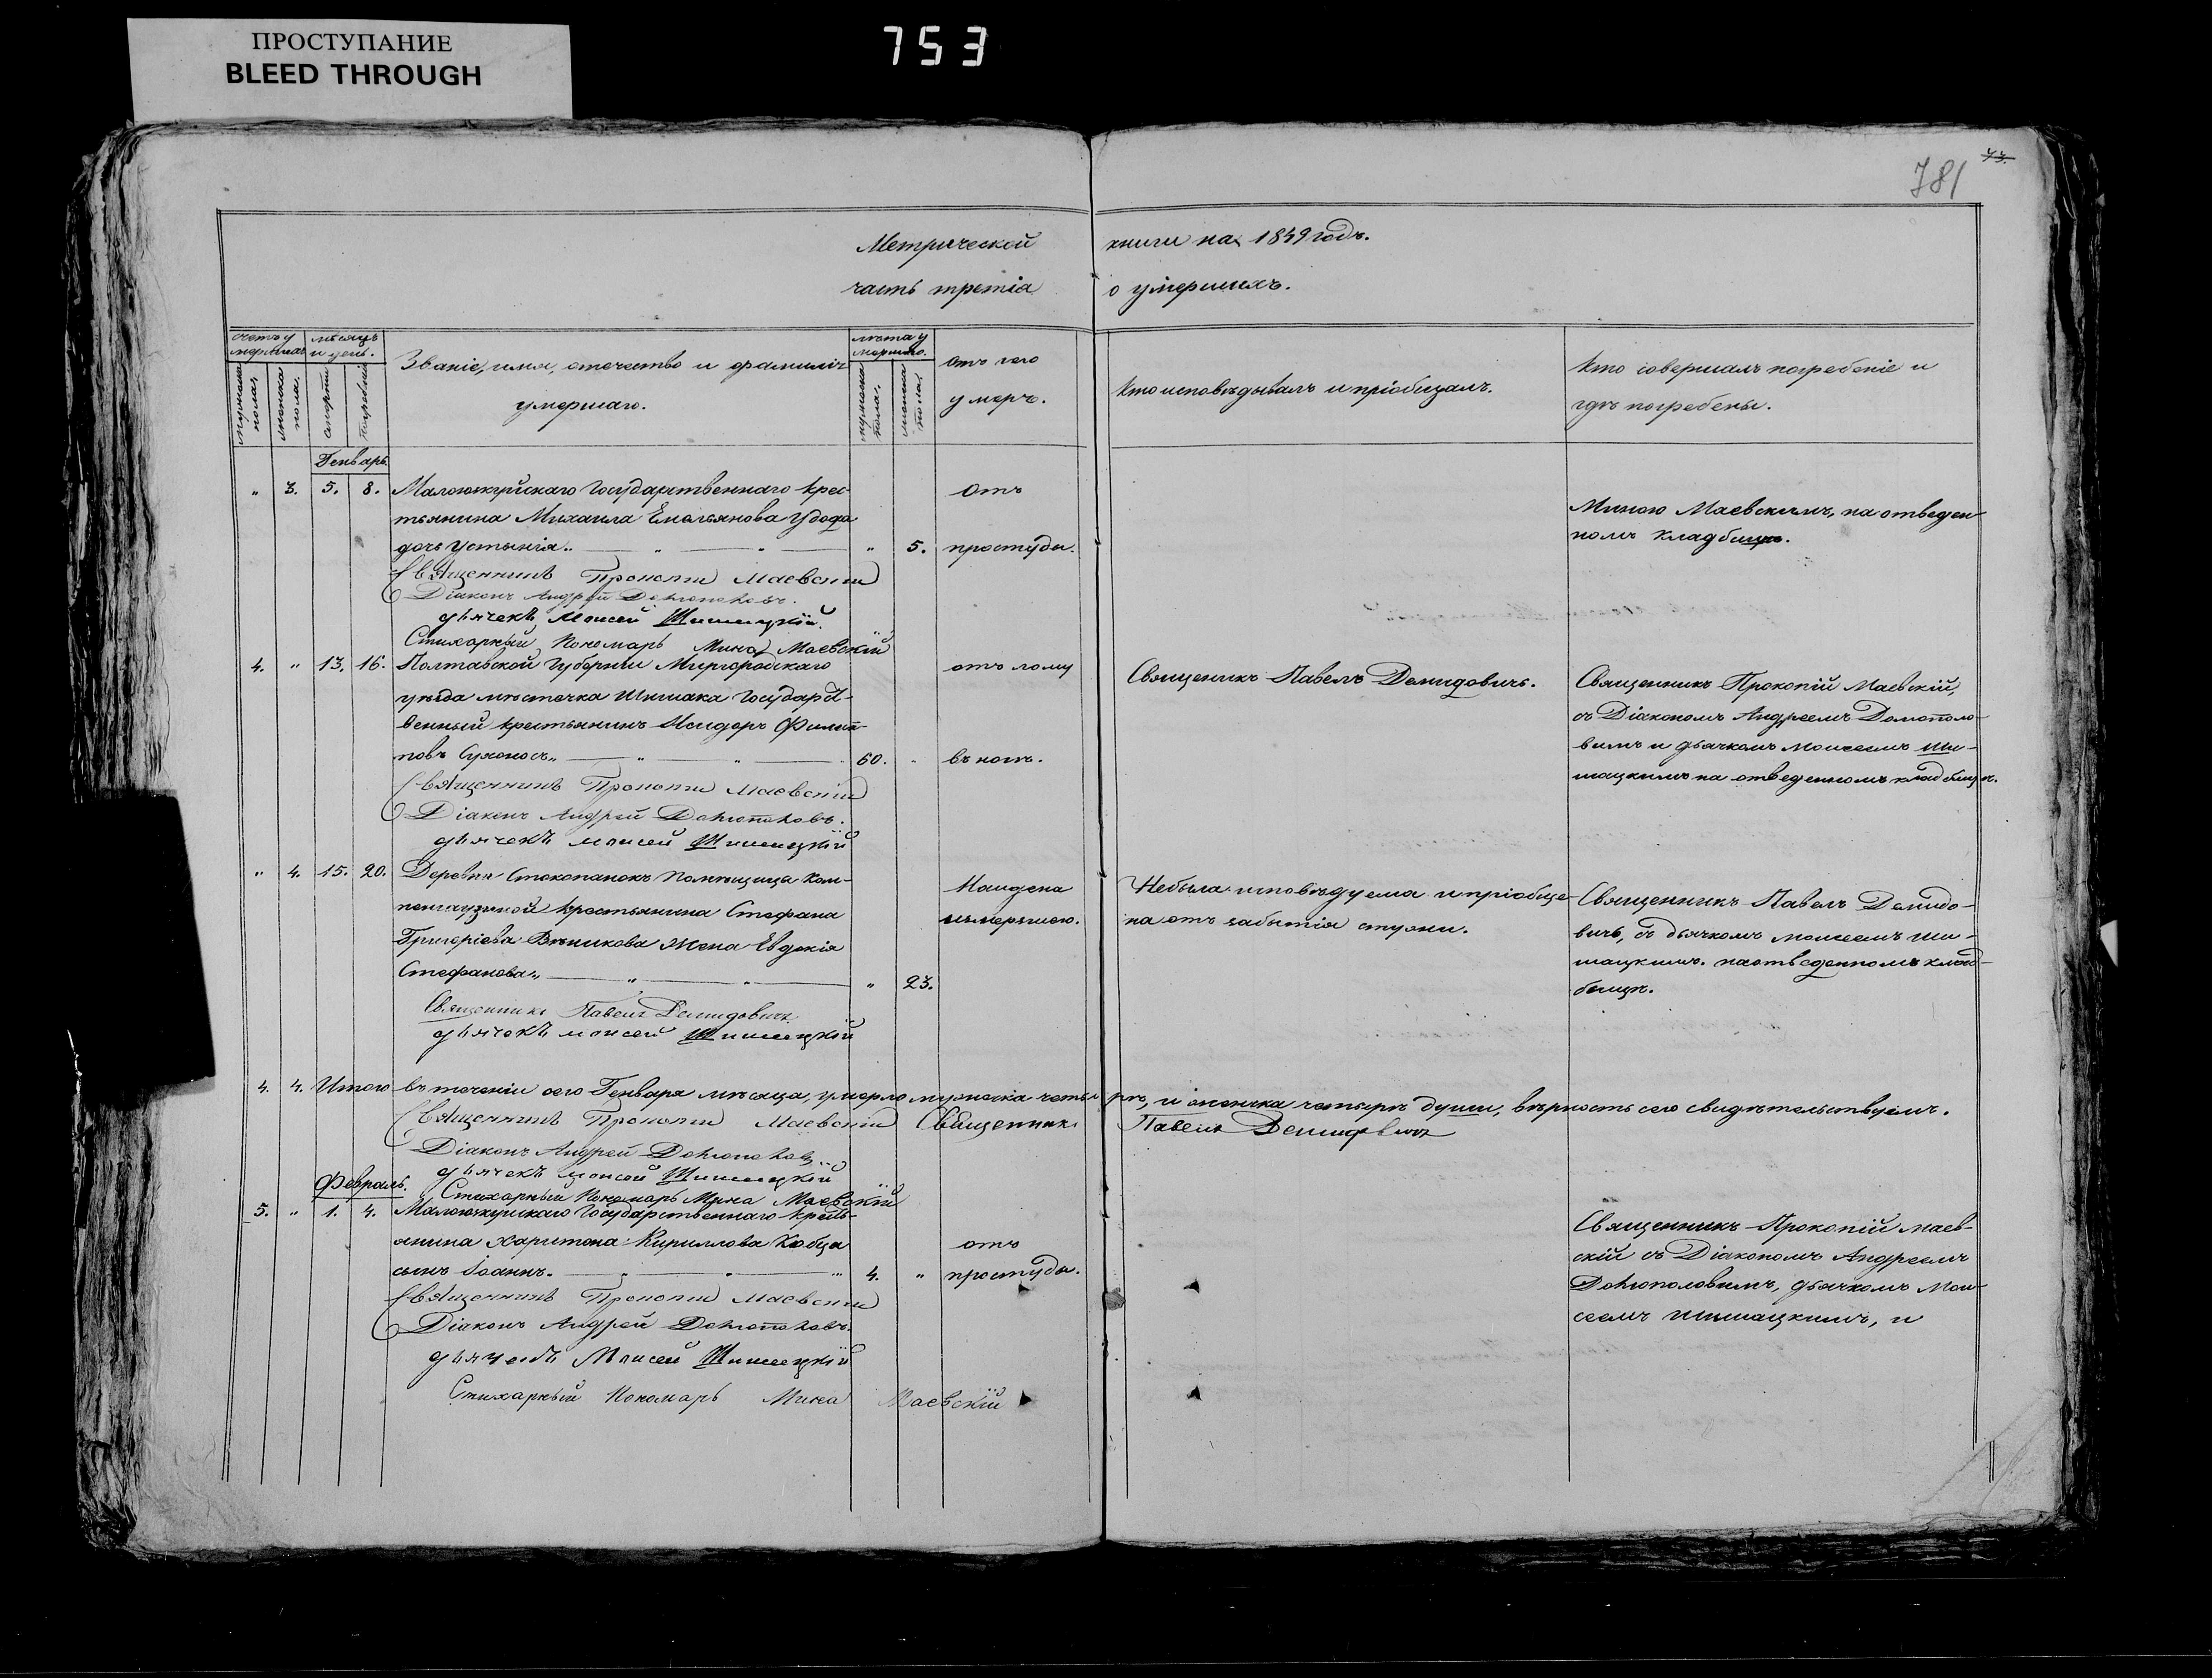 ПРОСТУПАНИЕ
BLEED THROUGH
753
781
73.
Метрической книги на 1849 годъ.
часть третіа о умершихъ.
счетъ у
мершихъ
мѣсяцъ
и день.
Званіе, имя, отечество и фамиліа
умершаго.
лѣта у
мершаго.
Отъ чего
умеръ.
Кто исповѣдывалъ и пріобщалъ.
Кто совершалъ погребеніе и
гдѣ погребены.
мужеска пола.
женска пола.
смерти
погребенія
мужеска пола.
женска пола
Генварь.
" 3. 5. 8. государственнаго крес-
тьянина Михаила Емельянова
дочь Устыніа " 5.
Отъ
простуды.
Миною Маевскимъ, на отведен
номъ кладбищѣ.
Священникъ Прокопій Маевскій
Діаконъ Андрей
дьячекъ Моисей Шишацкій.
Стихарный Пономарь Мина Маевскій
4. " 13. 16. Полтавской Губерніи Миргородскаго
уѣзда мѣстечка Шишака Государст-
венный крестьянинъ Исидоръ Филип-
повъ Сухоносъ 60. "
отъ лому
въ ногѣ.
Священикъ Павелъ Демидовичъ.
Священникъ Прокопій Маевскій,
съ Діакономъ Андреемъ
вымъ и дьячкомъ Моисеемъ Ши-
шацкимъ на отведенномъ кладбищѣ.
Священникъ Прокопій Маевскій
Діаконъ Андрей
дьячекъ Моисей Шишацкій
" 4. 15. 20. Деревни Стокопанокъ помѣщица
крестьянина Стефана
Григоріева Вѣникова жена Евдокія
Стефанова " 23.
Найдена
измерзшою.
Небыла исповѣдуема и пріобще-
на отъ забытія стужи.
Священникъ Павелъ Демидо-
вичъ, съ дьячкомъ Моисеемъ Ши-
шацкимъ. на отведенномъ клад-
бищѣ.
Священникъ Павелъ Демидовичъ
дьячекъ Моисей Шишацкій
4. 4. Итого въ теченіи сего Генваря мѣсяца, умерло мужеска четыре, и женска четырѣ души, вѣрность сего свидѣтельствуемъ.
Священникъ Прокопій Маевскій Священникъ Павелъ Демидовичъ
Діаконъ Андрей
дьячекъ Моисей Шишацкій
Стихарный Пономарь Мина Маевскій
Февраль.
5. " 1. 4. Государственнаго кресть-
янина Харитона Кириллова Кобца
сынъ Іоаннъ. 4. "
отъ
простуды.
Священникъ Прокопій Маев-
скій съ Діакономъ Андреемъ
дьячкомъ Мои-
сеемъ Шишацкимъ, и
Священникъ Прокопій Маевскій
Діаконъ Андрей
дьячекъ Моисей Шишацкій
Стихарный Пономарь Мина Маевскій